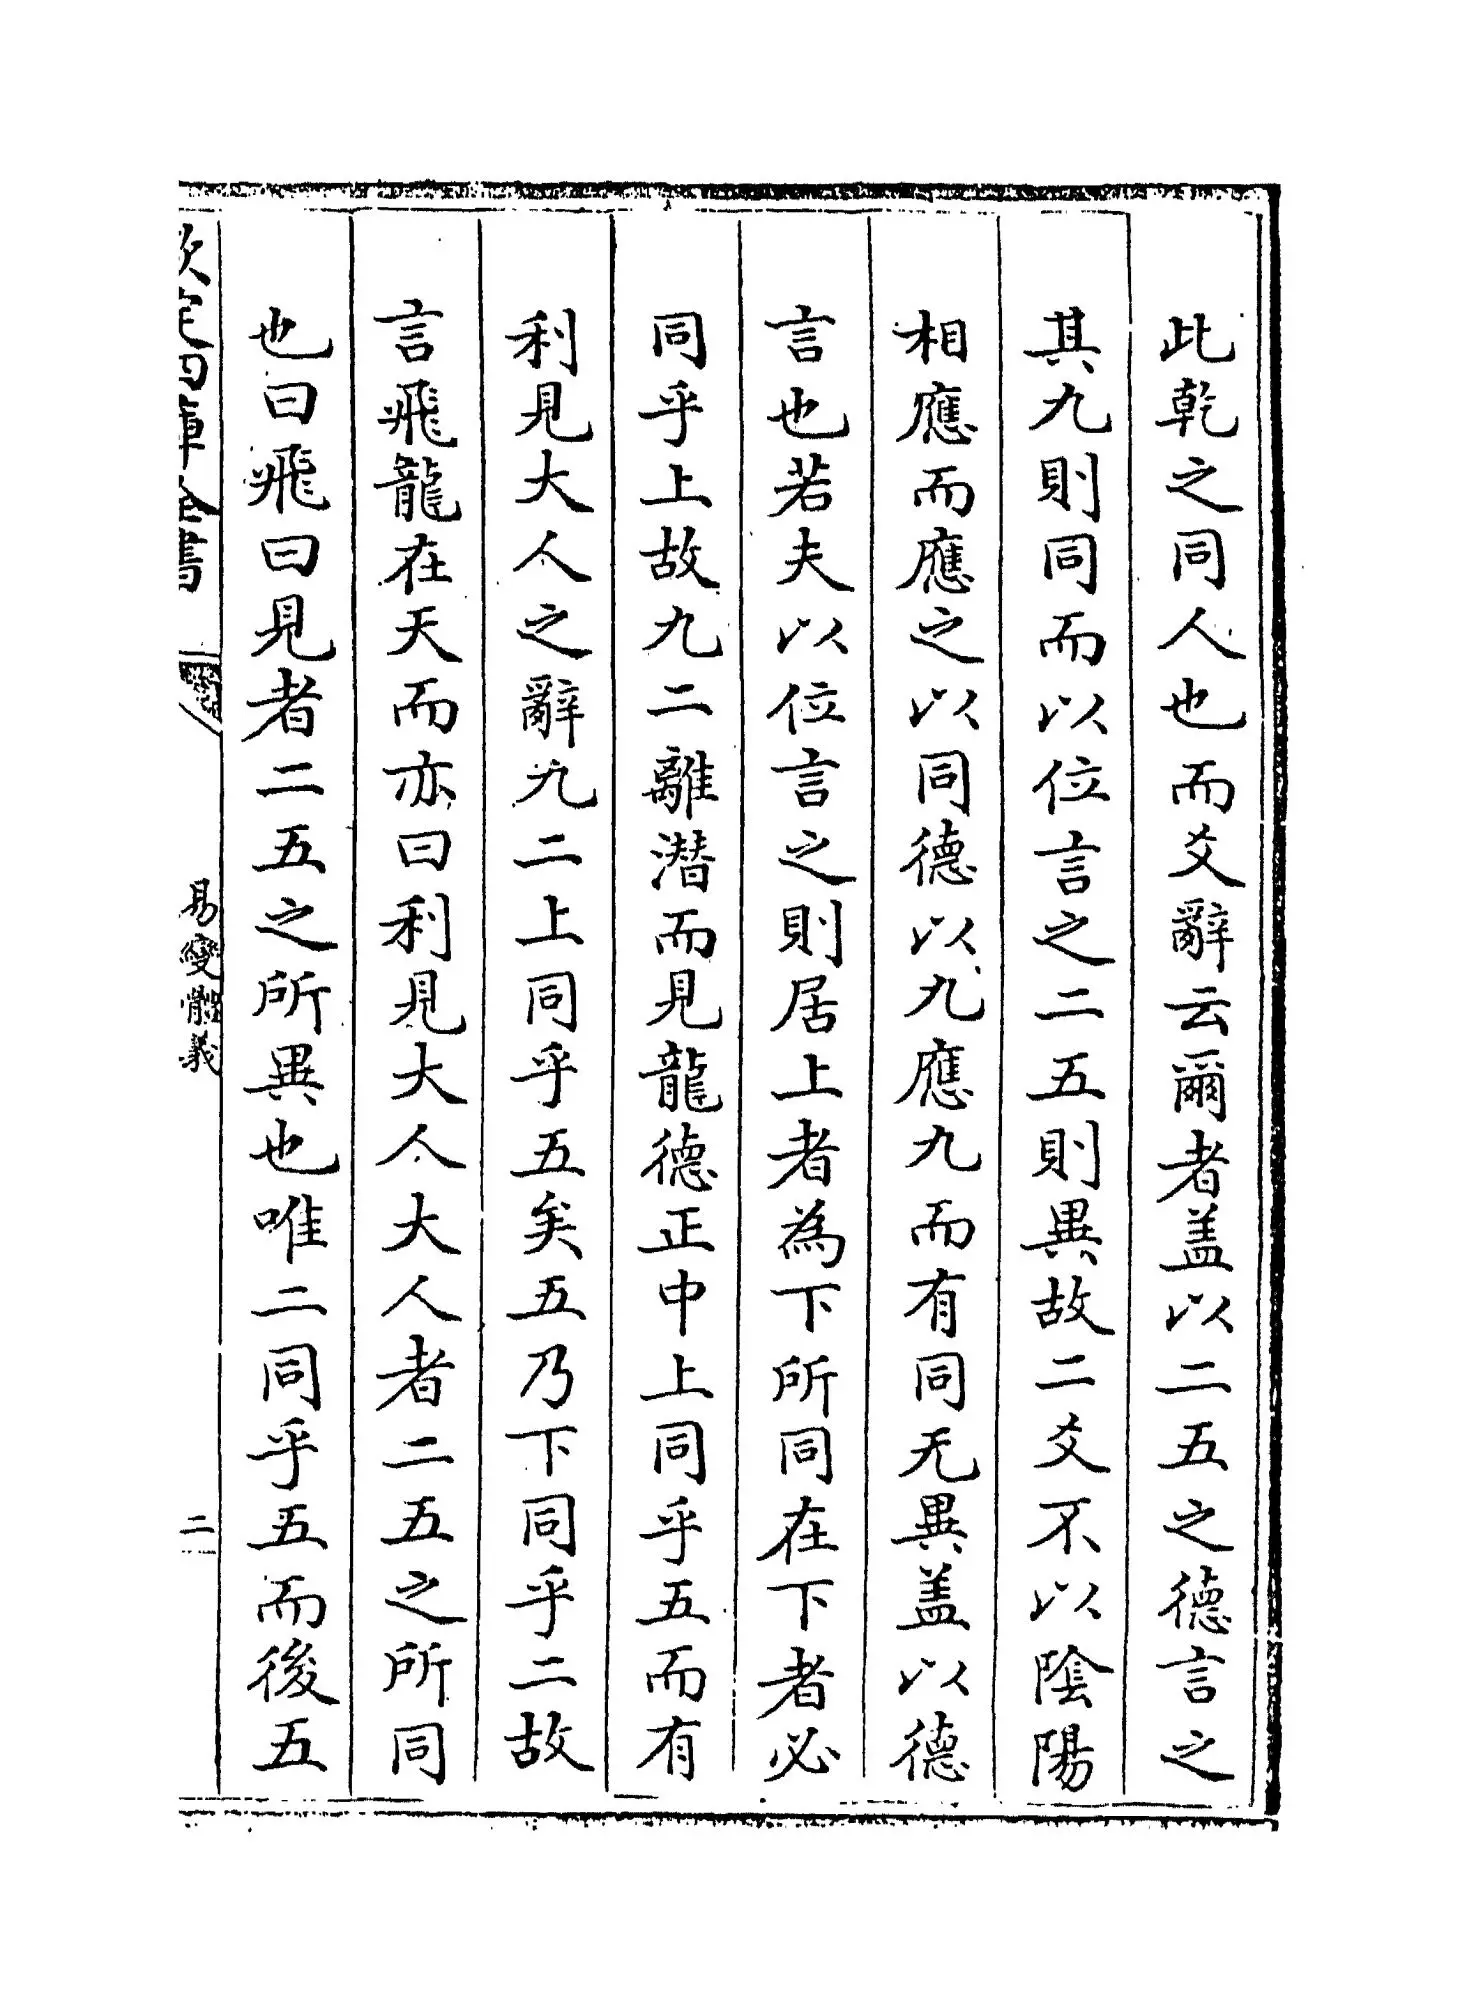 此乾之同人也而爻辭云爾者盖以二五之德言之
其九則同而以位言之二五則異故二爻不以陰陽
相應而應之以同德以九應九而有同无異盖以德
言也若夫以位言之則居上者為下所同在下者必
同乎上故九二離潛而見龍德正中上同乎五而有
利見大人之辭九二上同乎五矣五乃下同乎二故
言飛龍在天而亦曰利見大人大人者二五之所同
也曰飛曰見者二五之所異也唯二同乎五而後五
欽定四庫全書
易變體義
二